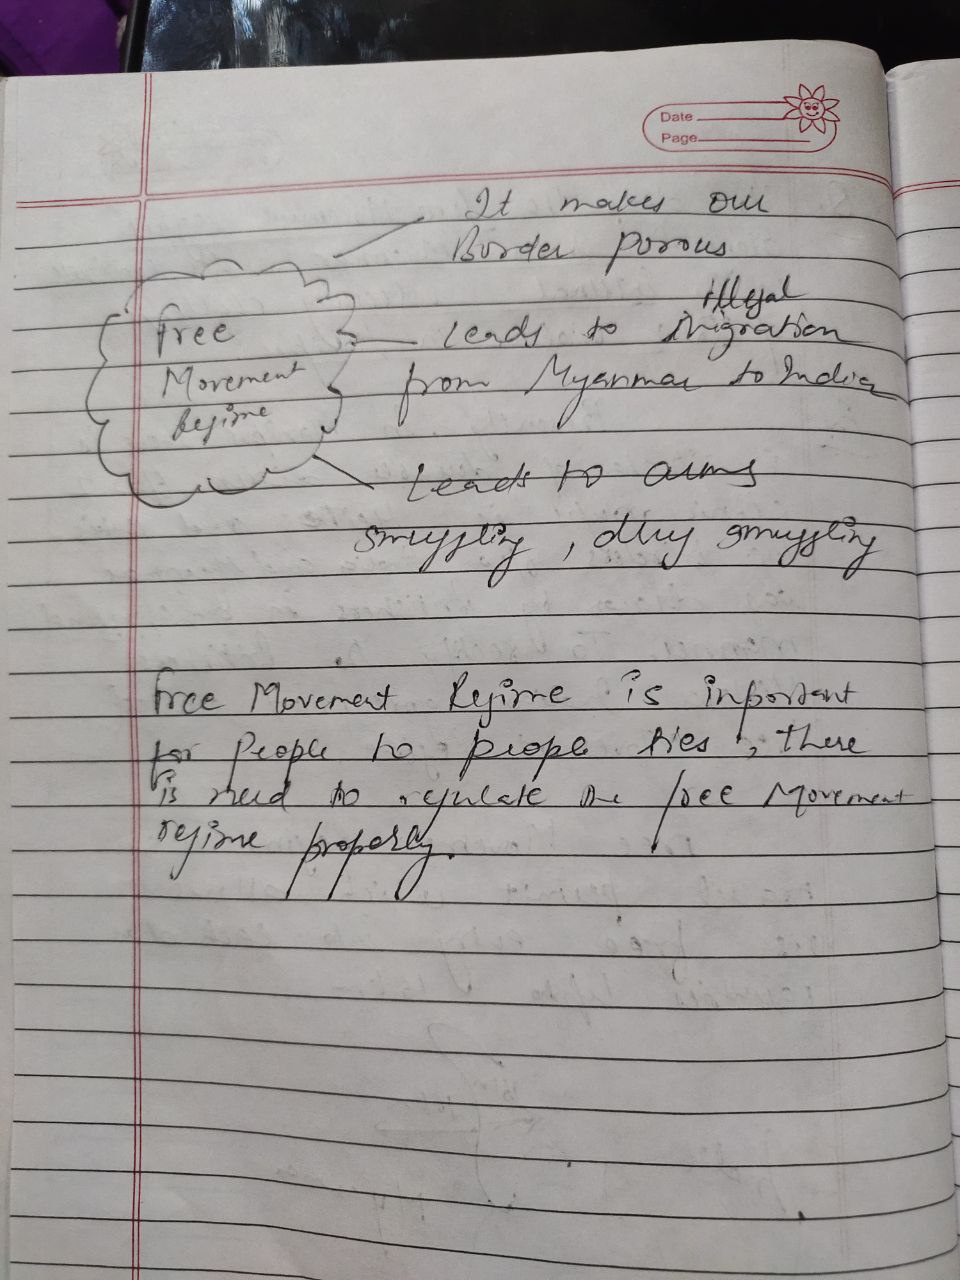 Date
Page
It makes our
Border porous
Free
Movement
Regime
illegal
Leads to migration
from Myanmar to India
Leads to arms
smuggling, drug smuggling
Free Movement Regime is important
for People to people ties, there
is need to regulate the free Movement
regime properly.